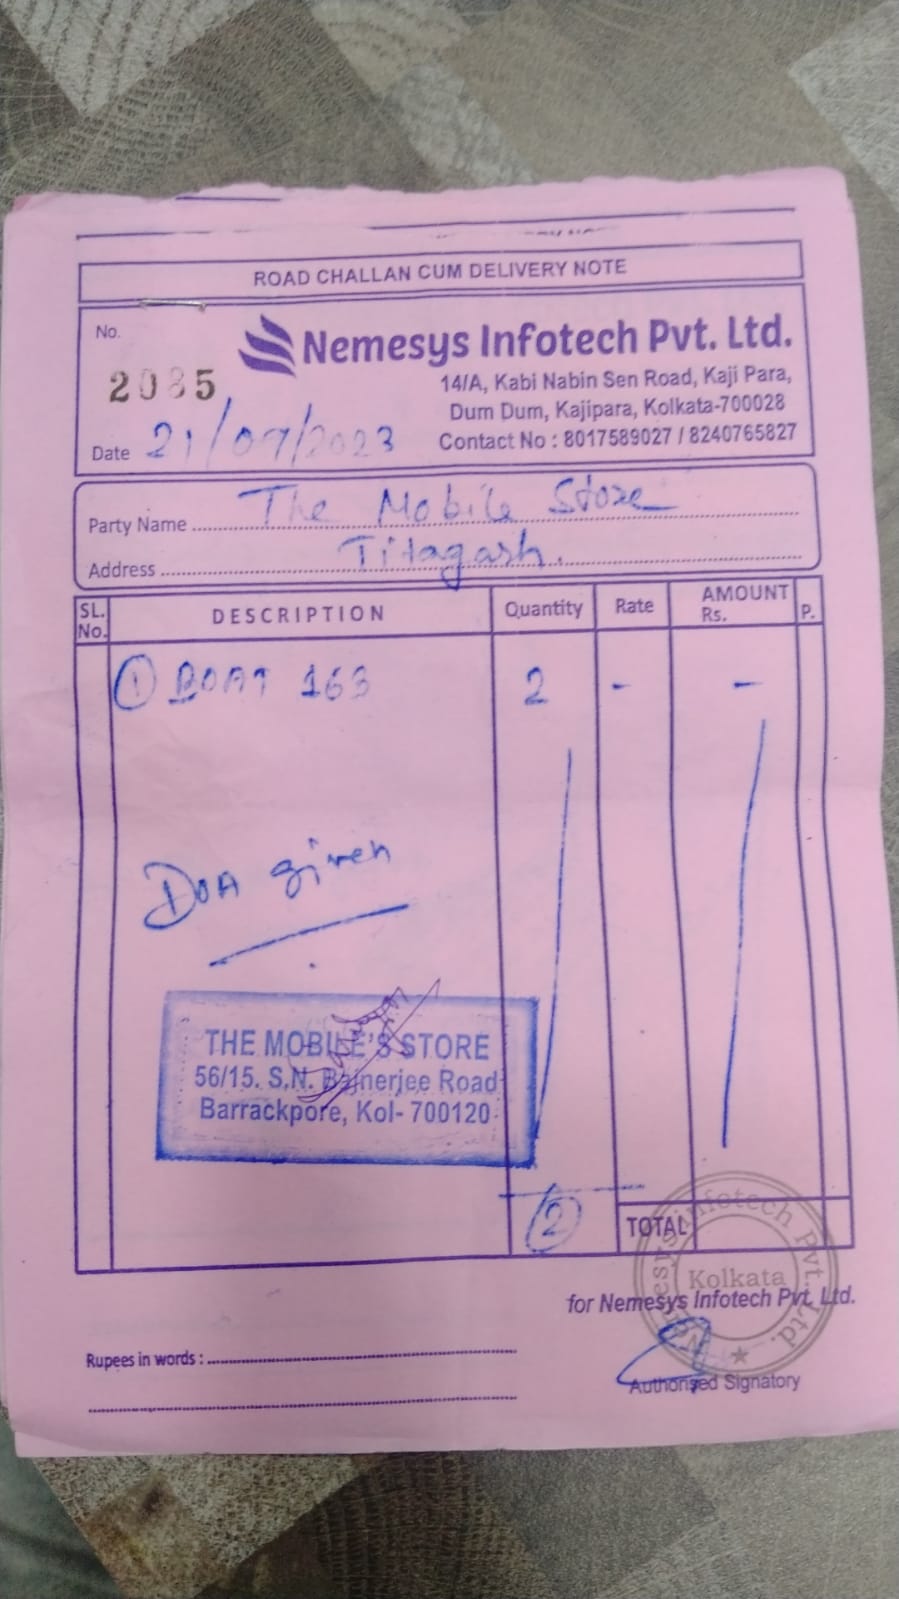 ROAD CHALLAN CUM DELIVERY NOTE
No.
2085
Nemesys Infotech Pvt. Ltd.
14/A, Kabi Nabin Sen Road, Kaji Para,
Dum Dum, Kajipara, Kolkata-700028
Contact No : 8017589027 / 8240765827
Date 21/09/2023
Party Name The Mobile Store
Address Titagarh.
SL. No. DESCRIPTION Quantity Rate AMOUNT Rs. P.
① BOAT 163 2 - -
DOA given
THE MOBILE'S STORE
56/15. S.N. Bajnerjee Road
Barrackpore, Kol- 700120
2
TOTAL
Nemesys Infotech Pvt. Ltd.
Kolkata
for Nemesys Infotech Pvt. Ltd.
Rupees in words :
Authorised Signatory